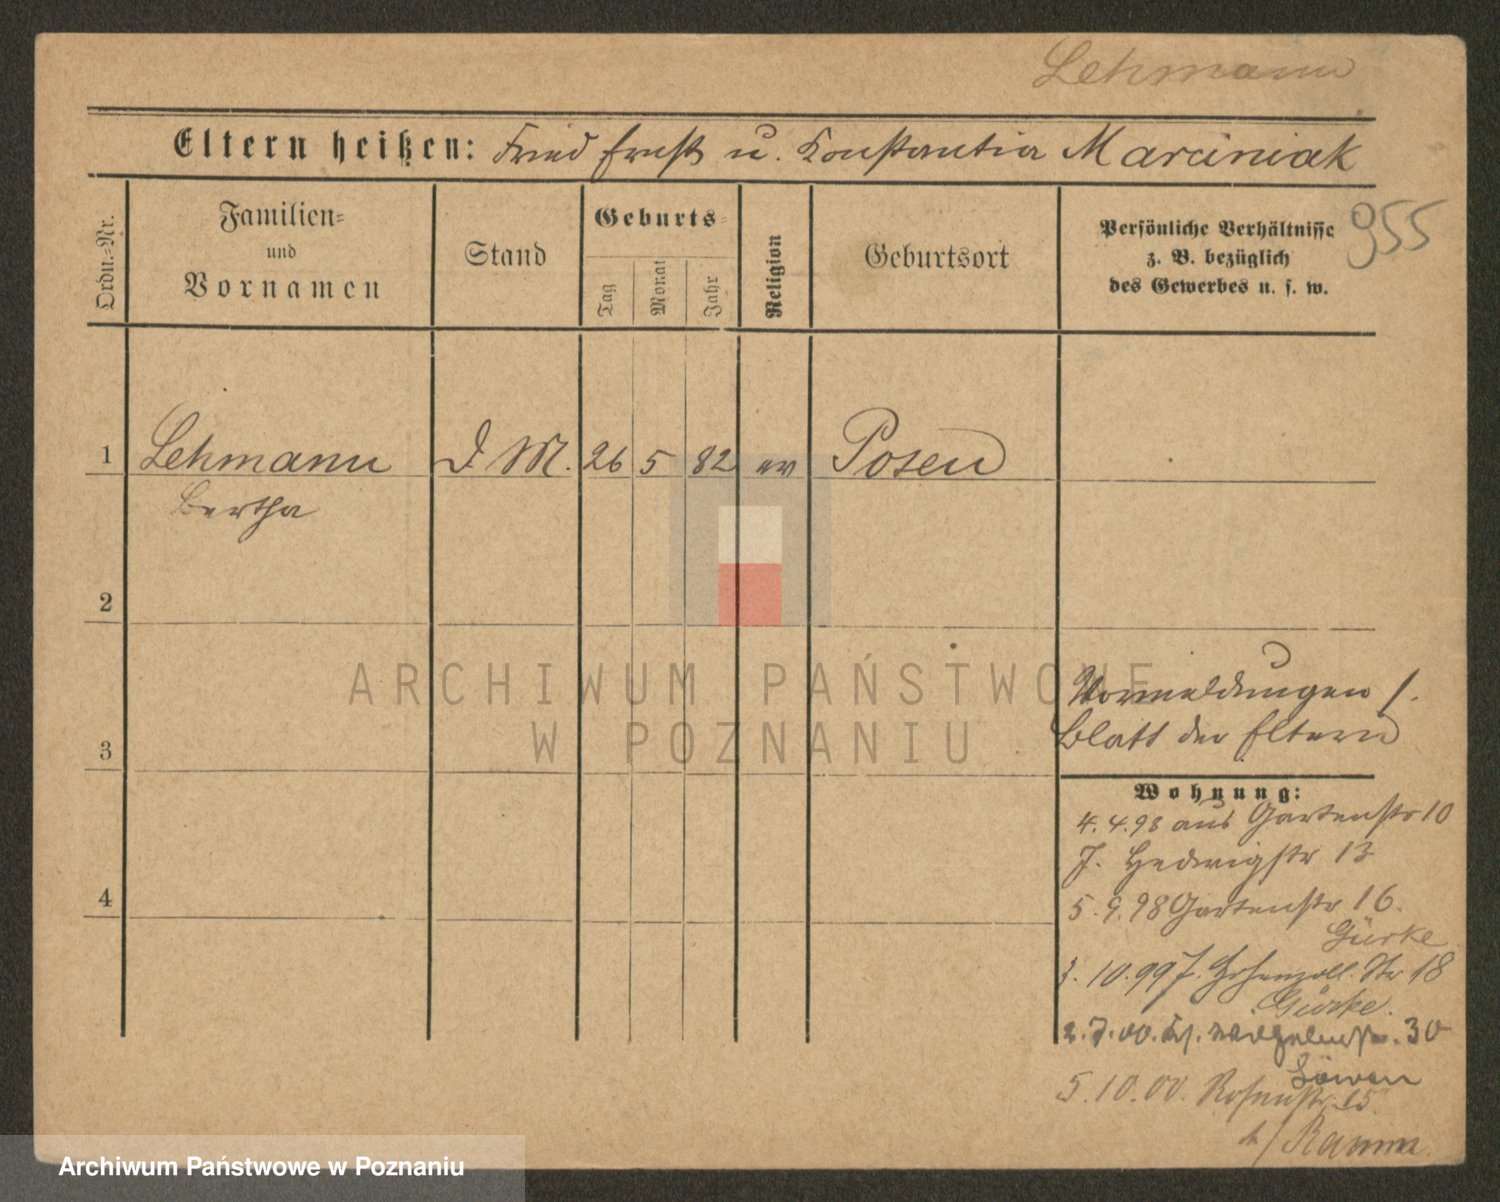 Lehmann
Eltern heißen: Fried Ernst u. Konstantia Marciniak
Ordn.-Nr.
Familien-
und
Vornamen
Stand
Geburts-
Tag
Monat
Jahr
Religion
Geburtsort
Persönliche Verhältnisse
z. B. bezüglich
des Gewerbes u. s. w.
955
1 Lehmann D. M. 26 5 82 ev Posen
Bertha
2
3
4
Vormeldungen s.
Blatt der Eltern
Wohnung:
4.4.98 aus Gartenstr 10
J. Hedwigstr 13
5.9.98 Gartenstr 16.
Gürke
3.10.99 J. Hohenzoll. Str 18
Gürke.
2.7.00. 30
Löwen
5.10.00. Rosenstr. 15
Ramm
ARCHIWUM PAŃSTWOWE
W POZNANIU
Archiwum Państwowe w Poznaniu